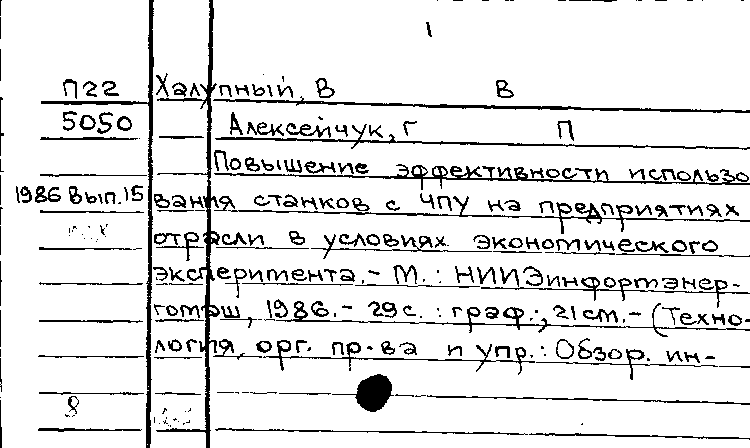 1
П22 Халупный, В В
5050 Алексейчук, Г П
Повышение эффективности использо
1986 Вып.15 вания станков с ЧПУ на предприятиях
отрасли в условиях экономического
эксперимента.- М.: НИИЭинформэнер-
гомаш, 1986.- 29с. : граф.; 21см.- (Техно-
логия, орг. пр-ва и упр.: Обзор. ин-
8